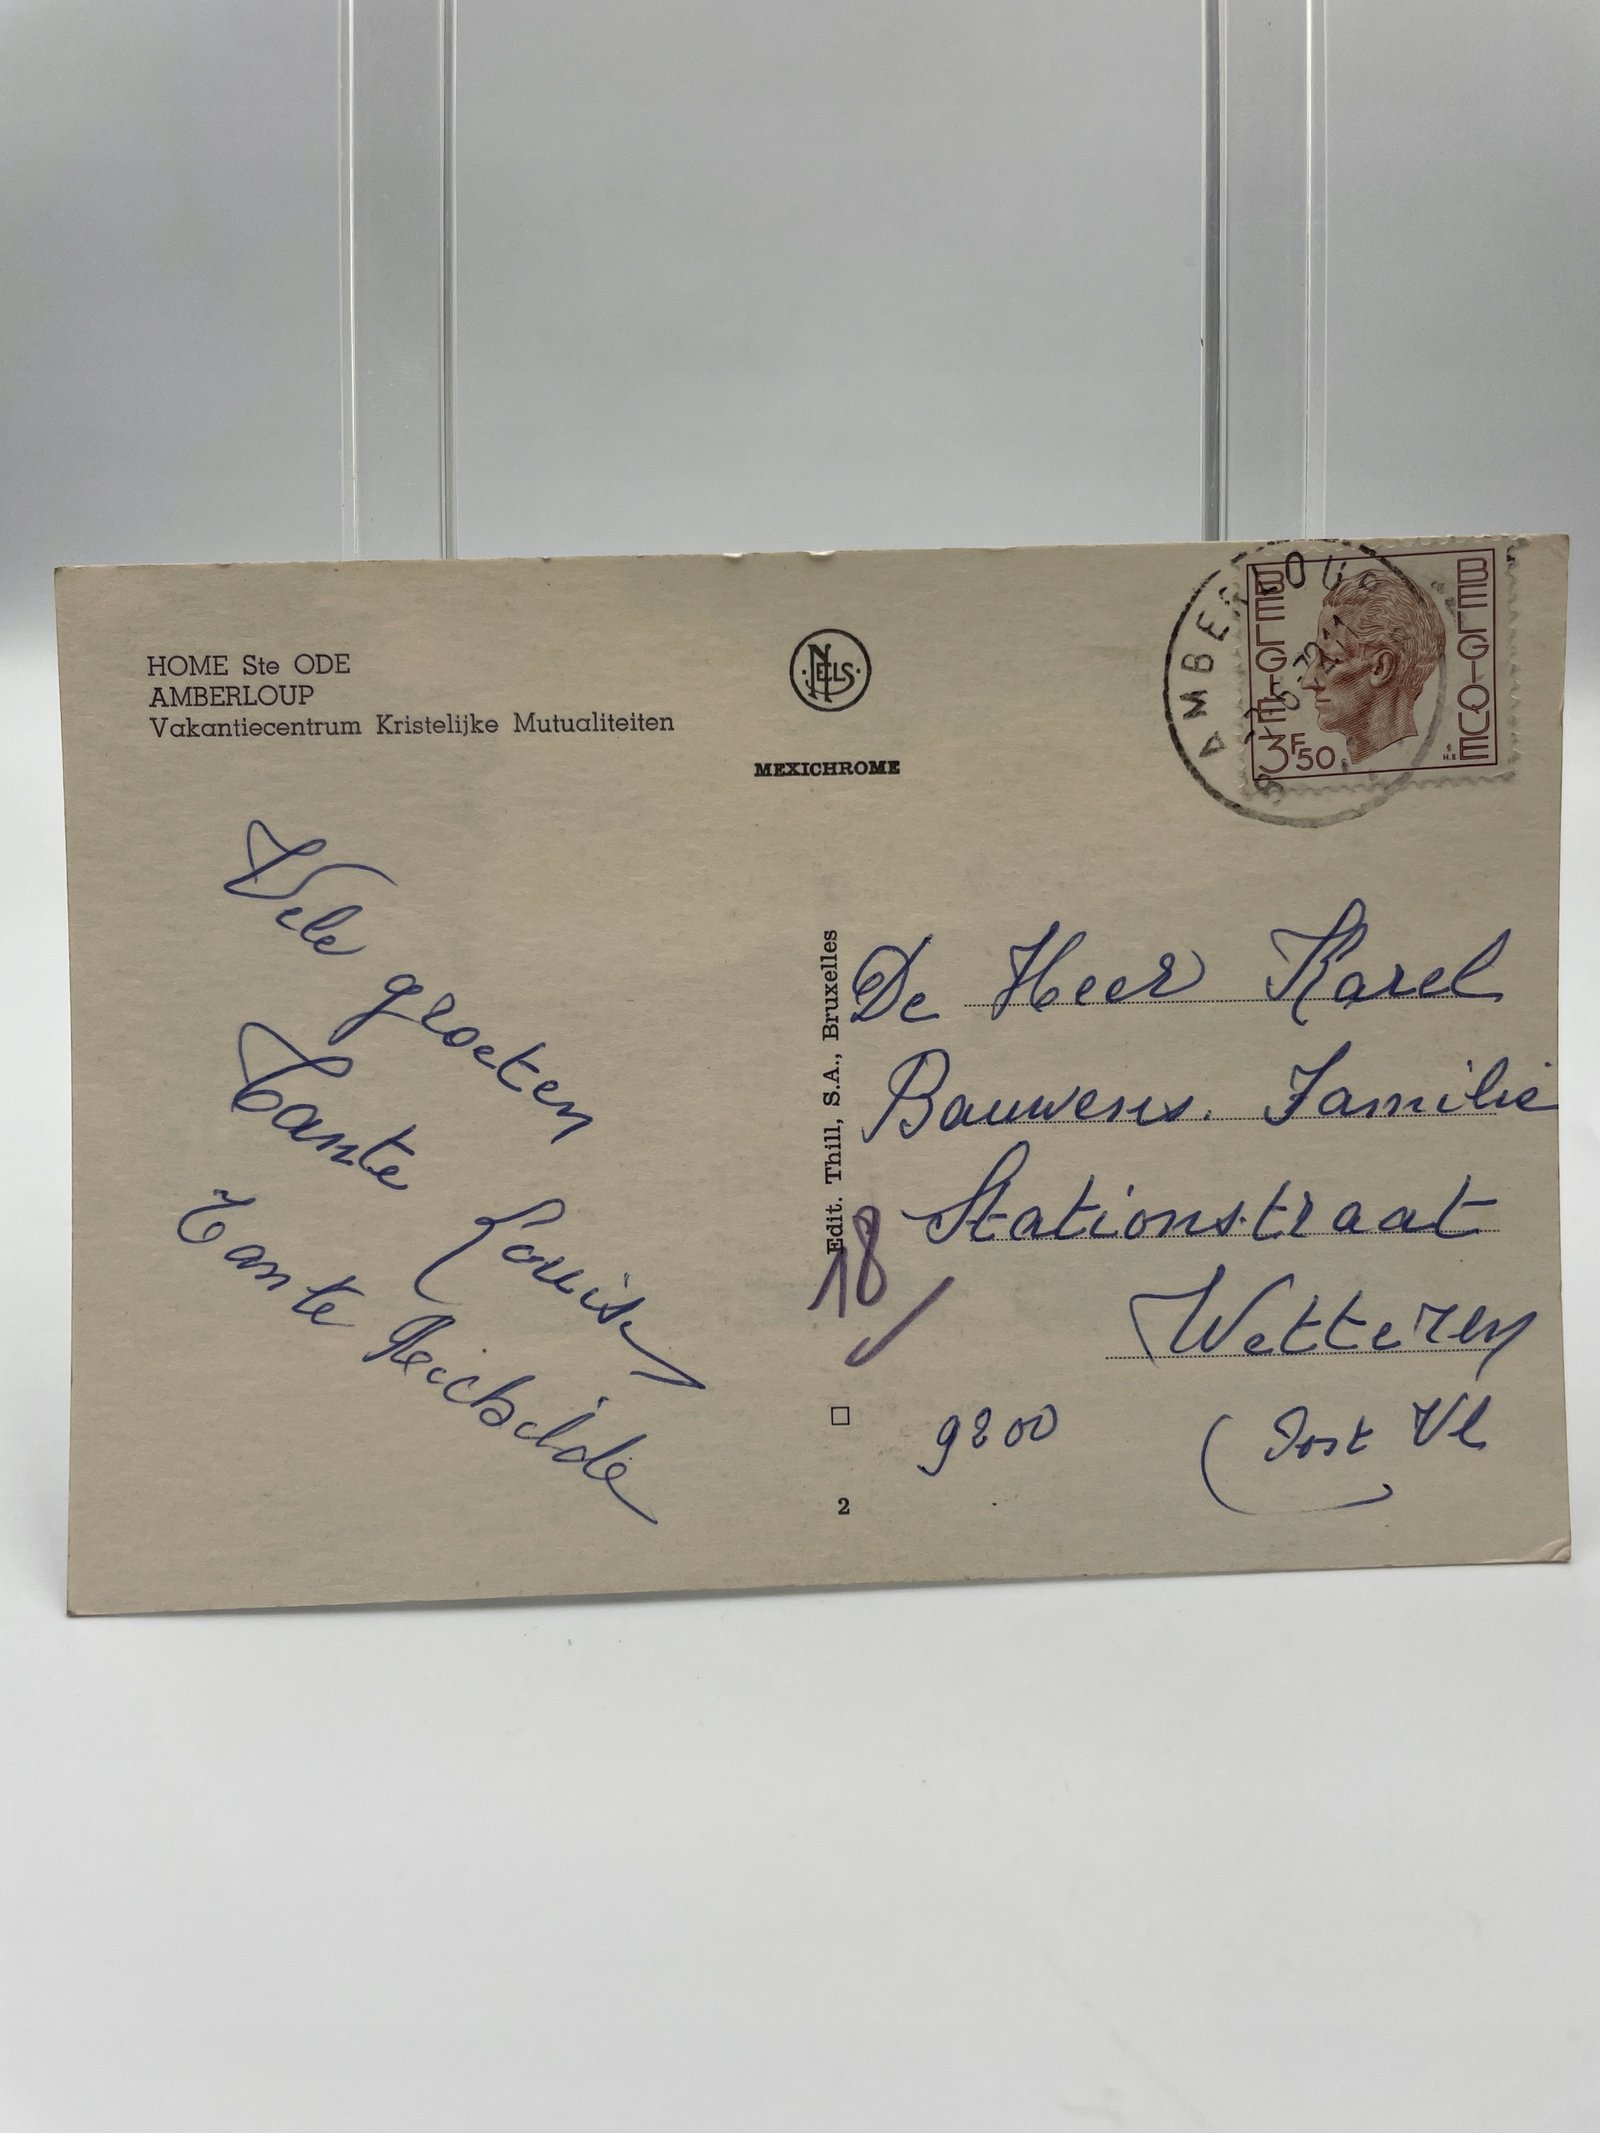 HOME Ste ODE
AMBERLOUP
Vakantiecentrum Kristelijke Mutualiteiten
NELS
MEXICHROME
AMBERLOUP
BELGIË
BELGIQUE
3F50
Vele groeten
Tante Louisa
Tante Reichilde
Edit. Thill, S.A., Bruxelles
De Heer Karel
Bauwens. Familie
Stationstraat
18
Wetteren
9200 (Oost Vl
2